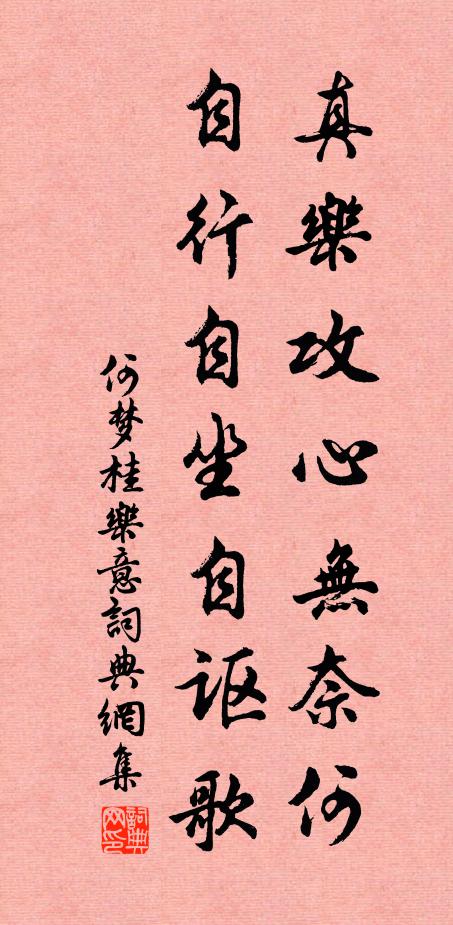 真樂攻心無奈何
自行自坐自讴歌
何梦桂樂意詞典網集
詞典
网印